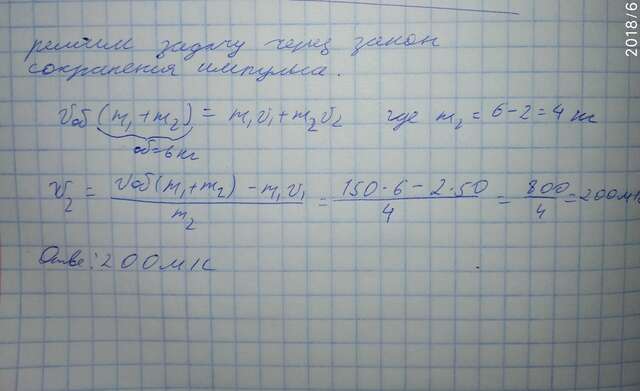 решим задачу через закон
сохранения импульса.
Vоб (m₁ + m₂) = m₁v₁ + m₂v₂ где m₂ = 6 - 2 = 4 кг
об = 6 кг
v₂ = (Vоб(m₁+m₂) - m₁v₁)/m₂ = (150·6 - 2·50)/4 = 800/4 = 200м/с
Ответ: 200м/с
2018/6